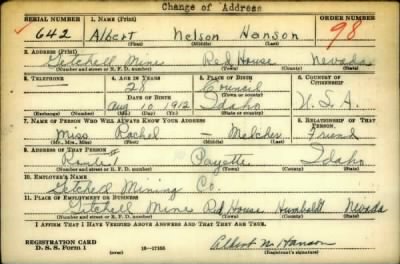 Change of Address
SERIAL NUMBER 1. NAME (Print) ORDER NUMBER
642 Albert Nelson Hanson 98
(First) (Middle) (Last)
2. ADDRESS (Print)
Getchell Mine Red House Nevada
(Number and street or R. F. D. number) (Town) (County) (State)
3. TELEPHONE 4. AGE IN YEARS 5. PLACE OF BIRTH 6. COUNTRY OF CITIZENSHIP
28 Council
DATE OF BIRTH (Town or county)
Aug 10 1912 Idaho U.S.A.
(Exchange) (Number) (Mo.) (Day) (Yr.) (State or country)
7. NAME OF PERSON WHO WILL ALWAYS KNOW YOUR ADDRESS 8. RELATIONSHIP OF THAT PERSON
Miss Rachel — Melcher Friend
(Mr., Mrs., Miss) (First) (Middle) (Last)
9. ADDRESS OF THAT PERSON
Route 1 Payette Idaho
(Number and street or R. F. D. number) (Town) (County) (State)
10. EMPLOYER'S NAME
Getchell Mining Co.
11. PLACE OF EMPLOYMENT OR BUSINESS
Getchell Mine Red House Humboldt Nevada
(Number and street or R. F. D. number) (Town) (County) (State)
I AFFIRM THAT I HAVE VERIFIED ABOVE ANSWERS AND THAT THEY ARE TRUE.
REGISTRATION CARD
D. S. S. Form 1 16—17105 Albert N. Hanson
(Registrant's signature)